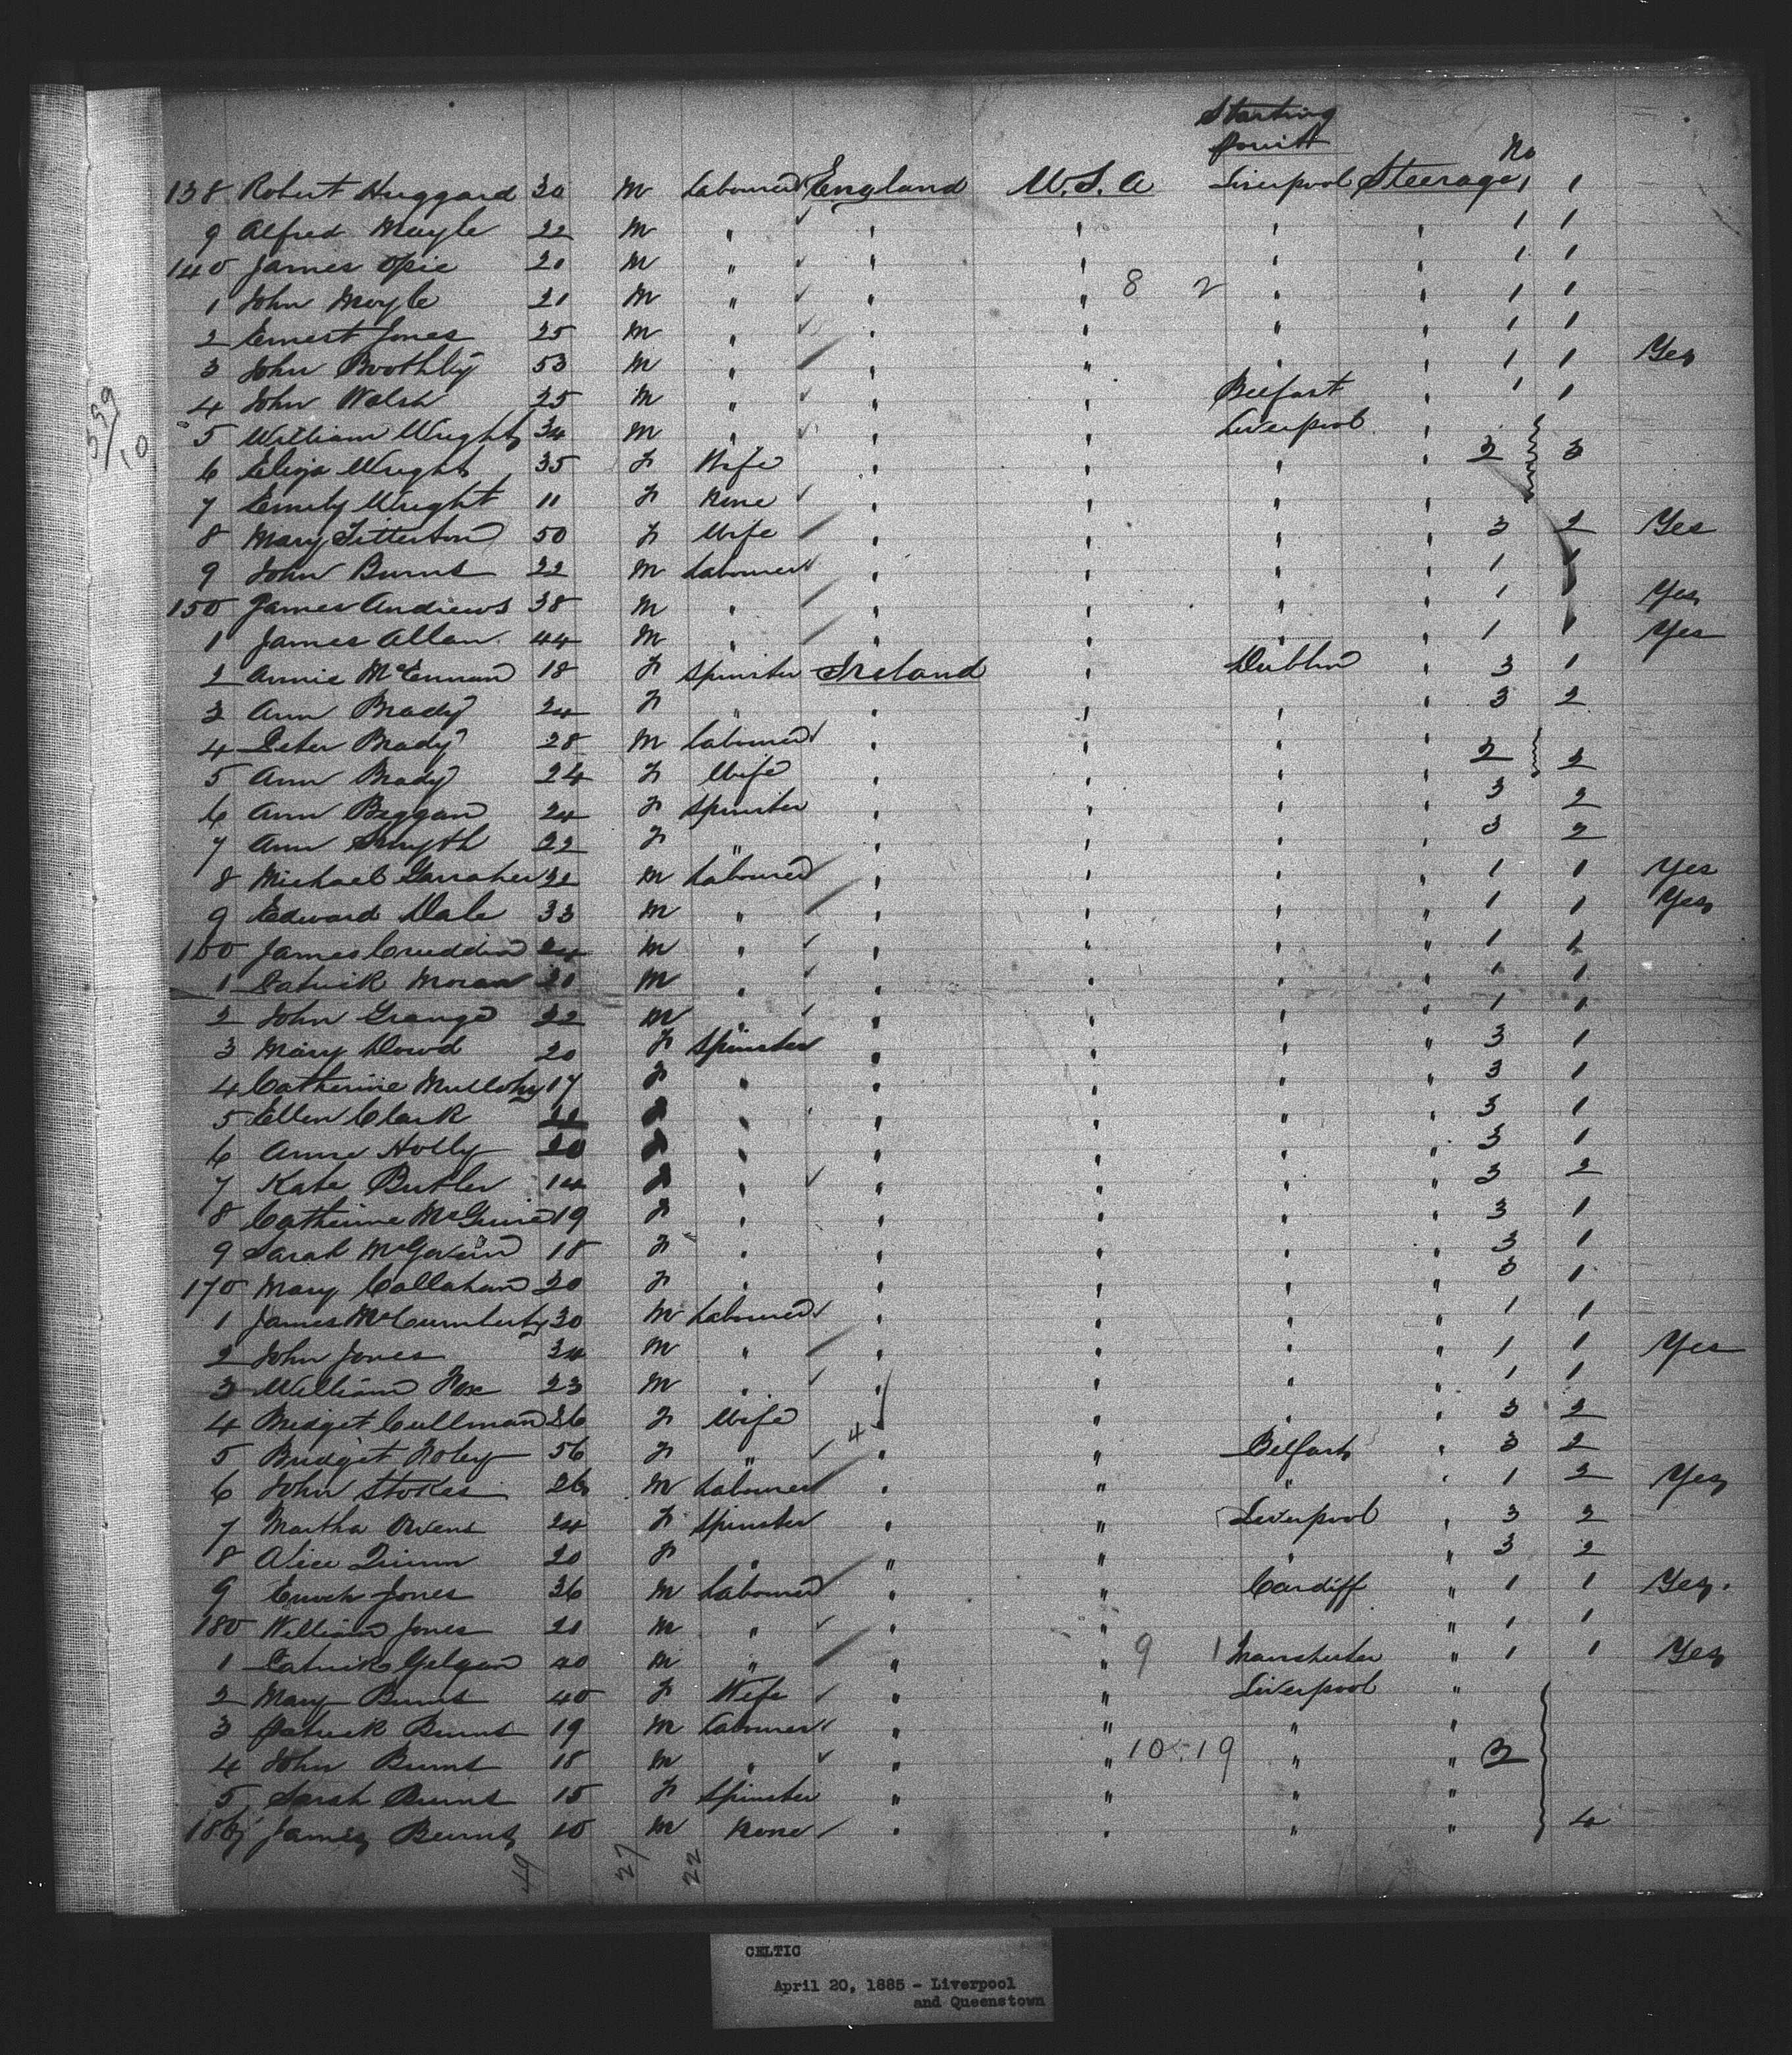 Starting
Point
No
138 Robert Huggard 30 M Labourer England U.S.A Liverpool Steerage 1 1
9 Alfred Moyle 22 M " " " " " 1 1
140 James Opie 20 M " " " " " 1 1
1 John Moyle 21 M " " " 8 2 " " 1 1
2 Ernest Jones 25 M " " " " " 1 1
3 John Boothby 53 M " " " " " 1 1 Yes
4 John Walsh 25 M " " " Belfast " 1 1
5 William Wright 34 M " " " Liverpool "
6 Eliza Wright 35 F Wife " " " " 2 3
7 Emily Wright 11 F None " " " "
8 Mary Titterton 50 F Wife " " " " 3 2 Yes
9 John Burns 22 M Labourer " " " " 1 1
150 James Andrews 38 M " " " " " 1 1 Yes
1 James Allan 44 M " " " " " 1 1 Yes
2 Annie McEnnan 18 F Spinster Ireland " Dublin " 3 1
3 Ann Brady 24 F " " " " " 3 2
4 Peter Brady 28 M Labourer " " " "
5 Ann Brady 24 F Wife " " " " 2 2
6 Ann Beggan 24 F Spinster " " " " 3 2
7 Ann Smyth 22 F " " " " " 3 2
8 Michael Garraher 32 M Labourer " " " " 1 1 Yes
9 Edward Dale 33 M " " " " " 1 1 Yes
160 James Cruddin 24 M " " " " " 1 1
1 Patrick Moran 20 M " " " " " 1 1
2 John Grange 22 M " " " " " 1 1
3 Mary Dowd 20 F Spinster " " " " 3 1
4 Catherine Mullohy 17 F " " " " " 3 1
5 Ellen Clark 21 F " " " " " 3 1
6 Anne Holly 20 F " " " " " 3 1
7 Kate Butler 14 F " " " " " 3 2
8 Catherine McGuire 19 F " " " " " 3 1
9 Sarah McGovern 18 F " " " " " 3 1
170 Mary Callahan 20 F " " " " " 3 1
1 James McCumberty 30 M Labourer " " " " 1 1
2 John Jones 34 M " " " " " 1 1 Yes
3 William Fox 23 M " " " " " 1 1
4 Bridget Cullman 26 F Wife " " " 3 2
5 Bridget Foley 56 F " 4 " " Belfast " 3 2
6 John Stokes 26 M Labourer " " " " 1 2 Yes
7 Martha Owens 24 F Spinster " " Liverpool " 3 2
8 Alice Quinn 20 F " " " " " 3 2
9 Enoch Jones 36 M Labourer " " Cardiff " 1 1 Yes
180 William Jones 21 M " " " " 1 1
1 Patrick Gilgan 40 M " " " 9 1 Manchester " 1 1 Yes
2 Mary Burns 40 F Wife " " Liverpool "
3 Patrick Burns 19 M Labourer " " " "
4 John Burns 18 M " " " 10 19 " " 3
5 Sarah Burns 15 F Spinster " " " "
186 James Burns 10 M None " " " " 4
49 27 22
CELTIC
April 20, 1885 - Liverpool
and Queenstown